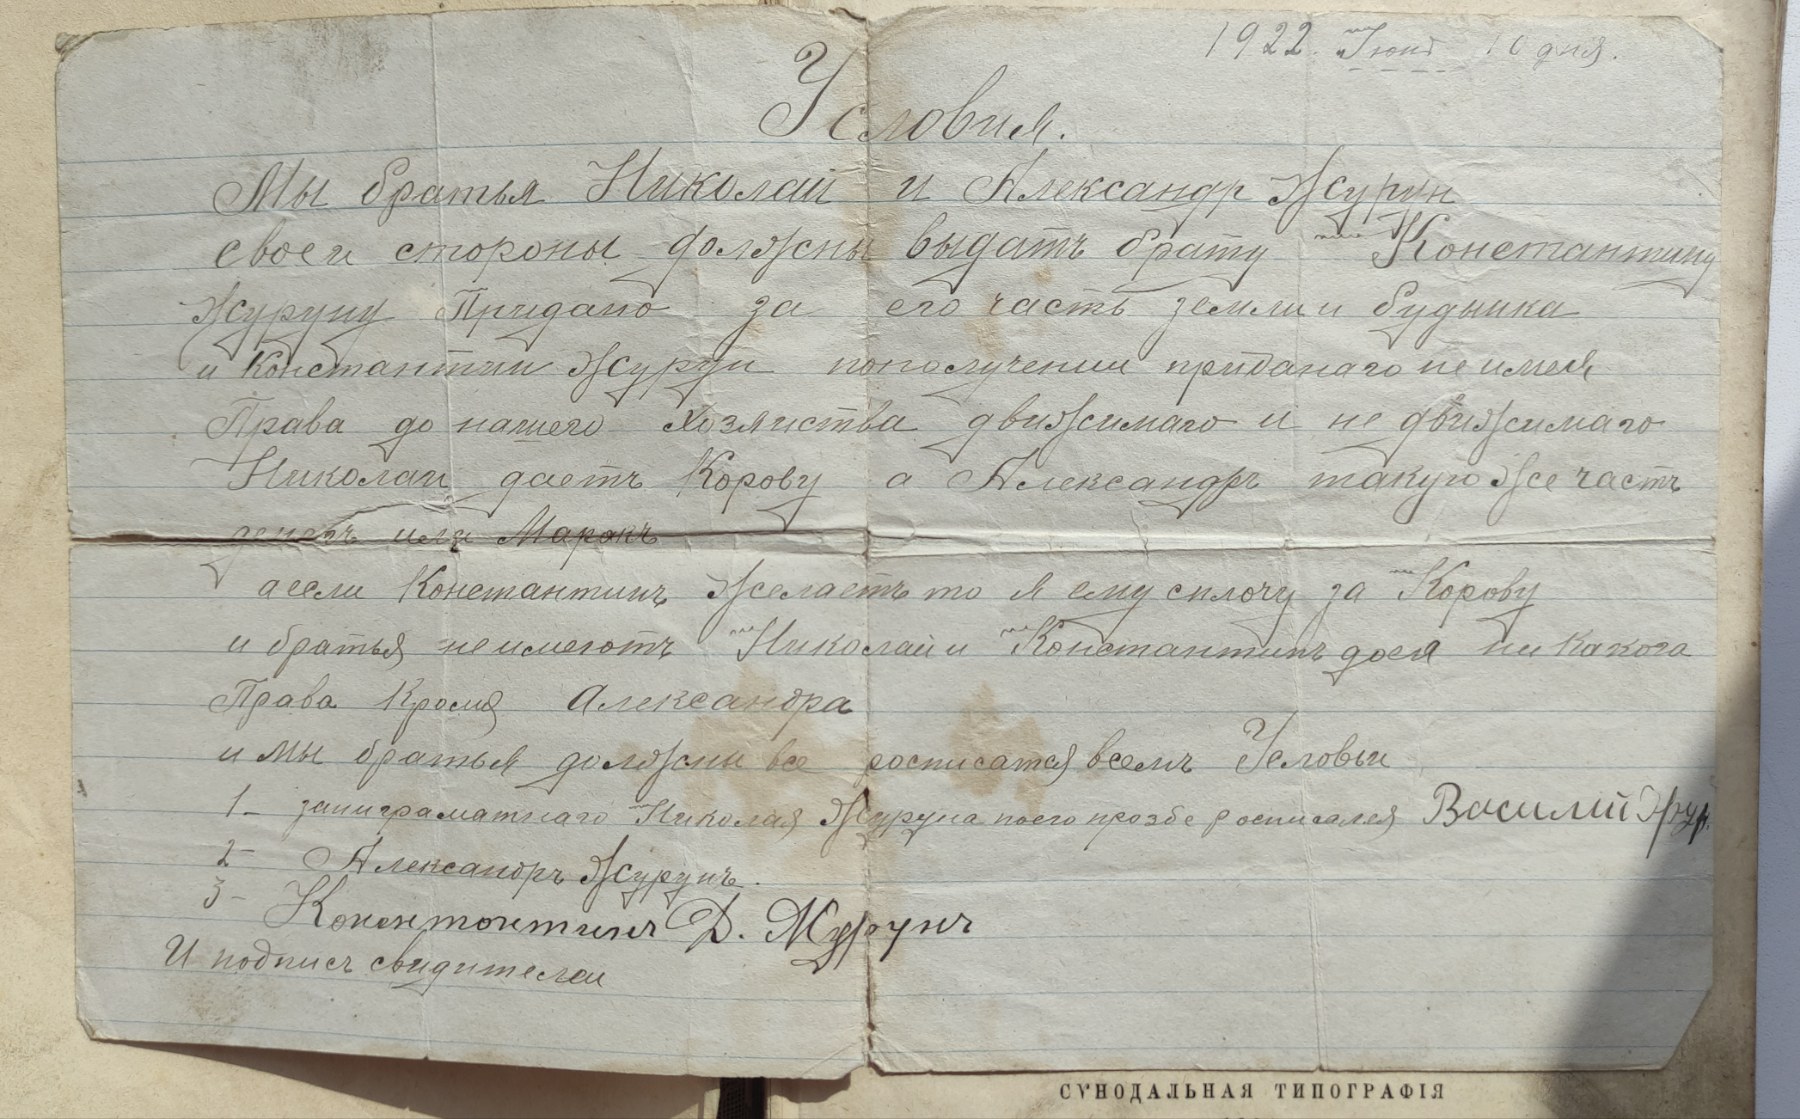 1922. Июня 10 дня.
Условия.
Мы братья Николай и Александр Журун
своеи стороны должны выдать брату Константину
Журуну Придано за его часть земли и будынка
и Константин Журун пополучении приданаго не имея
Права до нашего хозяиства движимаго и не движимаго
Николаи даеть Корову а Александръ такую же часть
денегъ или Марокъ
аесли Константинъ Желаетъ то я ему сплочу за Корову
и братья неимеютъ Николай и Константинъ доея ни какога
Права Кромя Александра
и мы братья должны все росписатся всемъ Условьи
1 - заниграматнаго Николая Журуна поего прозбе росписался Василий Жур.
2 - Александръ Журунъ.
3 - Константинъ Д. Журунъ
И подписъ свидителаи
СУНОДАЛЬНАЯ ТИПОГРАФІЯ